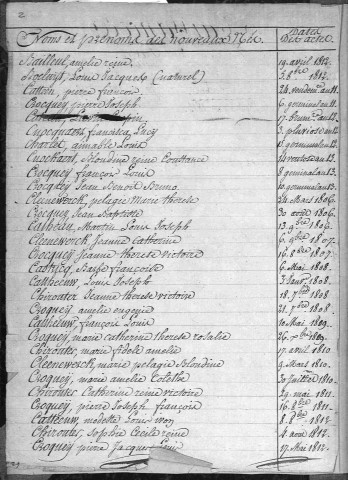 2
Noms et prénoms des nouveaux Nés. Dates des actes
Bailleul, amelie reine 19 avril 1812.
Louis Jacques (naturel) 2. 8bre 1812.
Catteau, pierre françois 24. vendem. an 11.
Crocquey, pierre Joseph 6. germinal an 11.
17. brum. an 12.
francisca Lucy 3. pluviose an 12.
Charlet, aimable Louis 5. germinal an 12.
Blondine reine Constance 14 ventose an 13.
Crocquey françois Louis 8 germinal an 13.
Crocquey Jean Benoit Bruno 10. germinal an 13.
Cleenewerck, pelagie Marie therese 24 Mars 1806.
Crocquey, Jean Baptiste 30 août 1806.
Martin Louis Joseph 13. 9bre 1806.
Cleenewerck, Jeanne Catherine 6. 9bre 1807.
Crocquey Jeanne therese victoire 16. 8bre 1807.
françoise 6. Mai 1808.
Catteeuw, Louis Joseph 3. Janv. 1808.
Jeanne therese victoire 18. 7bre 1808.
Croquey, amelie eugenie 21. 7bre 1808.
Catteeuw, françois Louis 10 Mai 1809.
Croquey, marie catherine therese rosalie 26. 1809.
Chiroutre, marie amelie 17 avril 1810.
Cleenewerck, marie pelagie Blondine 9. Mars 1810.
Croquey, marie amelie Colette 30 Juillet 1810.
Chiroutre Catherine reine victoire 29. mai 1811.
Croquey, pierre Joseph françois 16. 8bre 1811.
Catteeuw, modeste Louis 8. 8bre 1812.
Chiroutre, Sophie Cecile reine 4 aout 1812.
Croquey pierre Jacques Louis 17. Mai 1812.